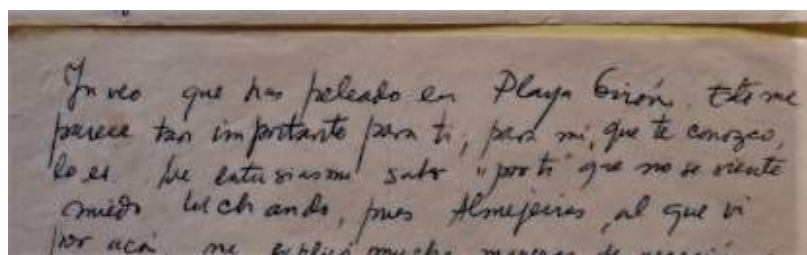 Ya veo que has peleado en Playa Girón. Esto me
parece tan importante para ti, para mi, que te conozco,
lo es. Me entusiasmó saber "por ti" que no se siente
miedo luchando, pues Almejeiras, al que vi
por acá, me explicó mucha maneras de